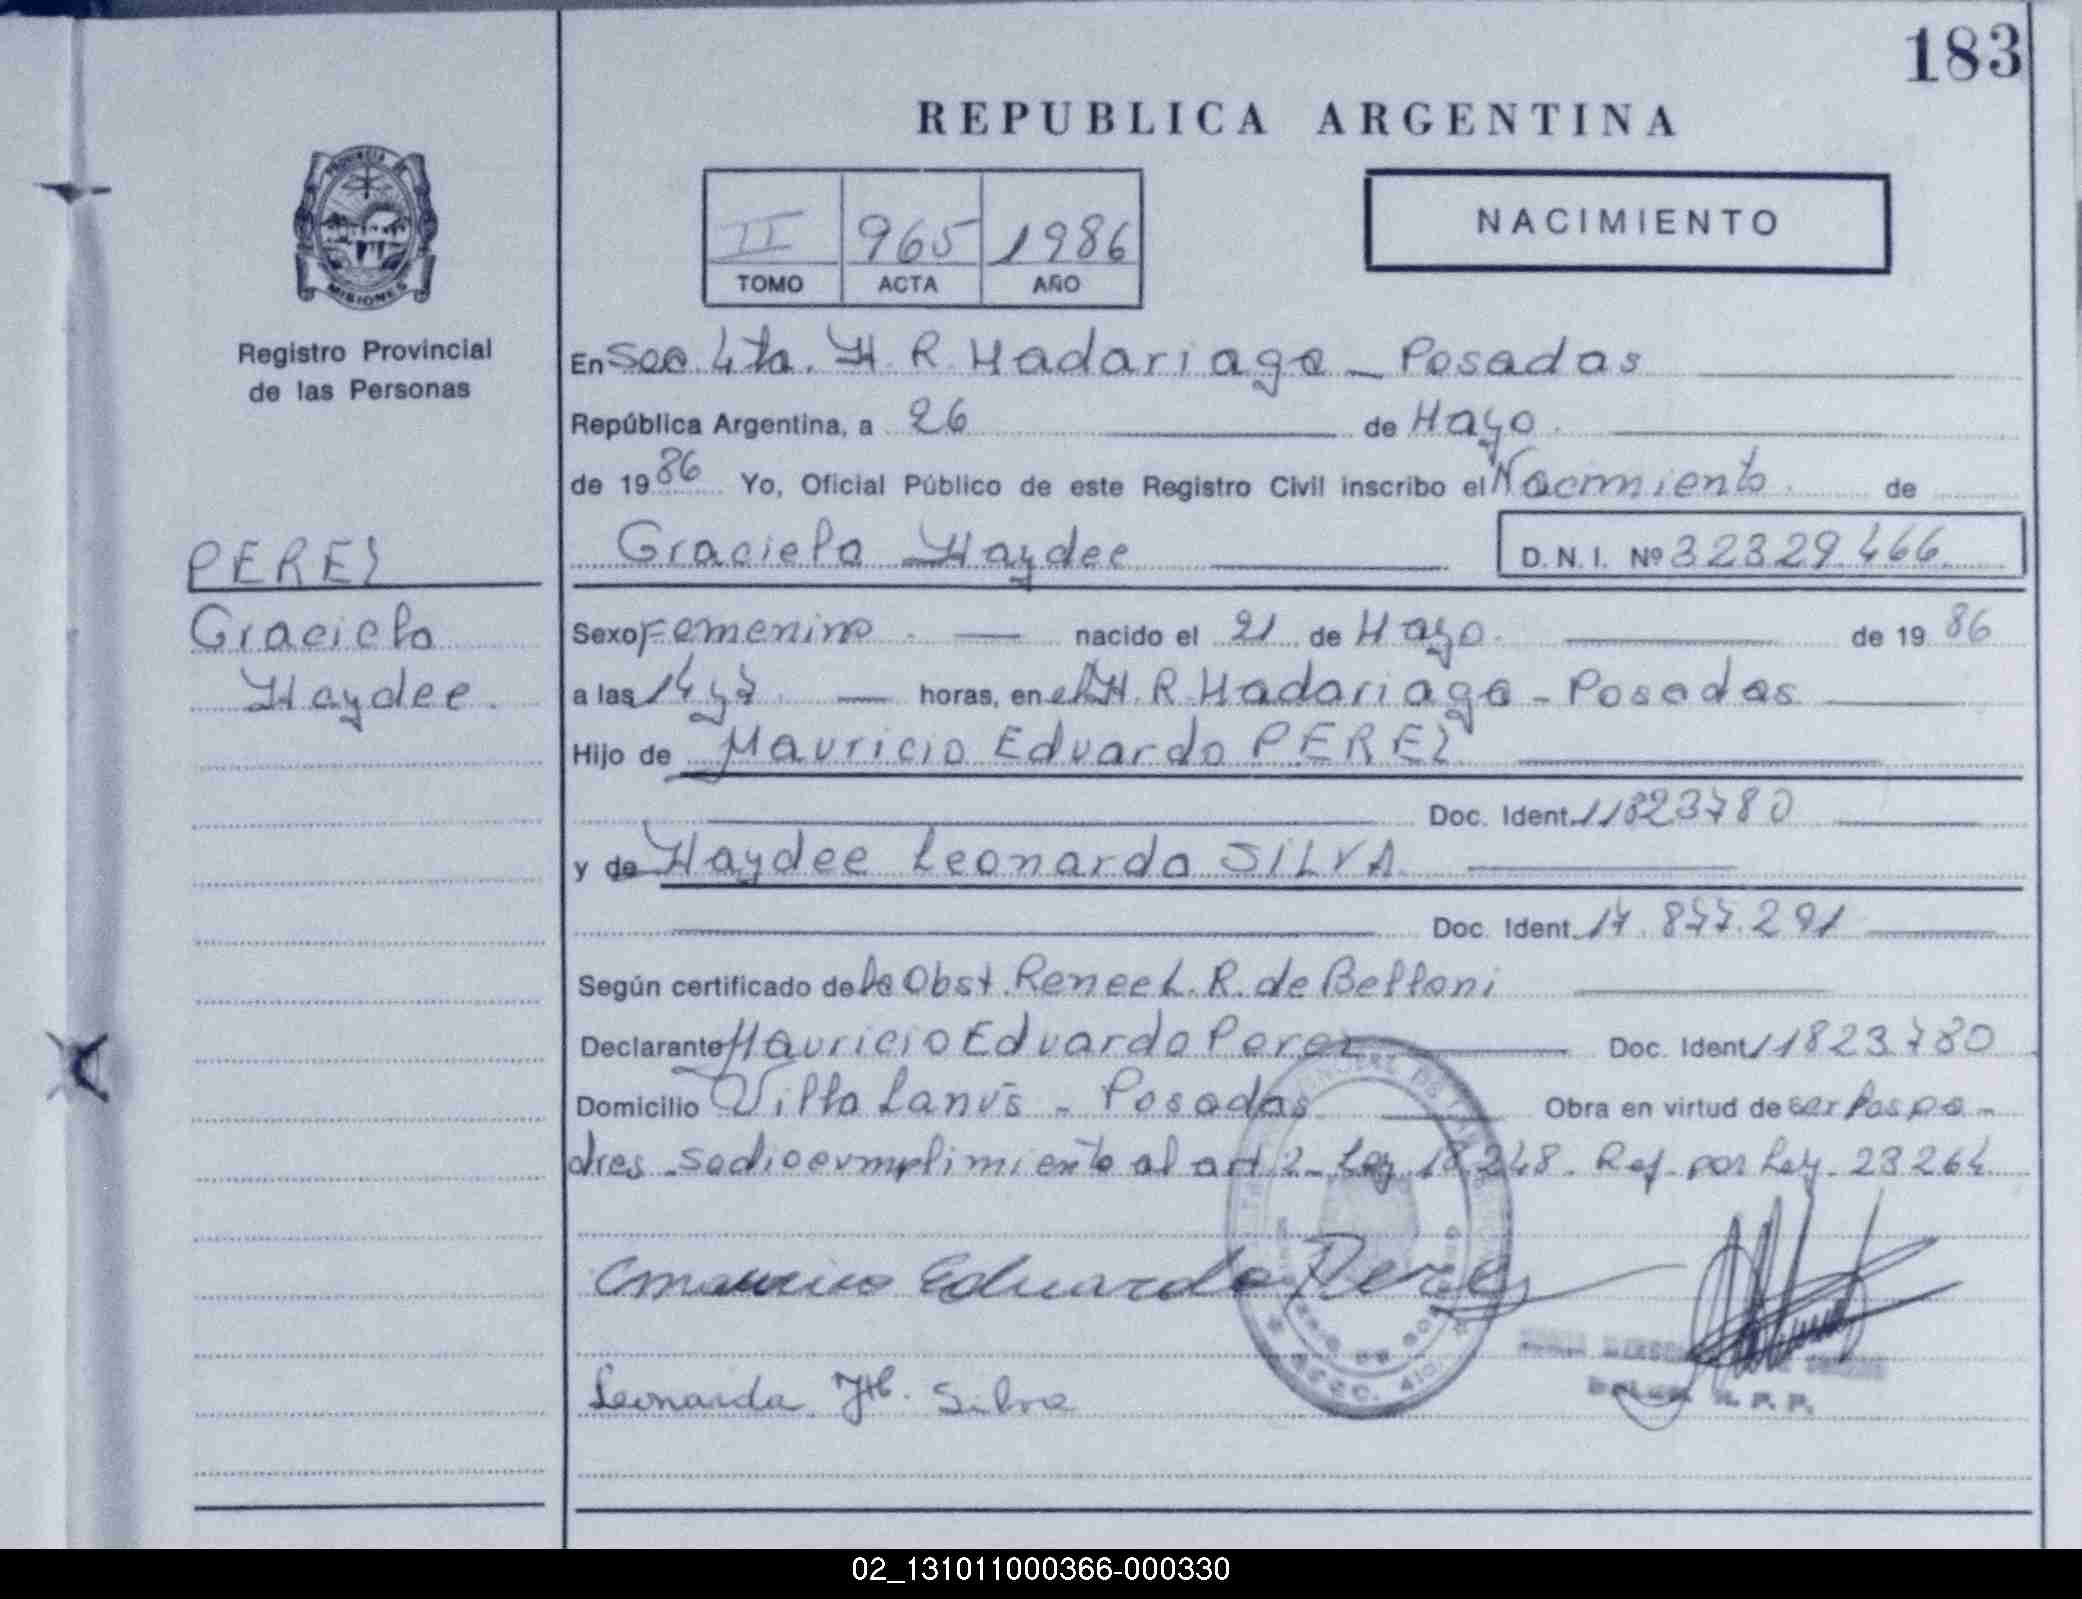 183
REPUBLICA ARGENTINA
PROVINCIA DE
MISIONES
Registro Provincial
de las Personas
II 965 1986
TOMO ACTA AÑO
NACIMIENTO
En Sec. 4ta. H. R. Madariaga - Posadas
República Argentina, a 26 de Mayo.
de 1986 Yo, Oficial Público de este Registro Civil inscribo el Nacimiento de
Graciela Haydee D.N.I. Nº 32329.466
PEREZ
Graciela
Haydee.
Sexo Femenino. nacido el 21 de Mayo. de 1986
a las 14 y 7. horas, en el H. R. Madariaga - Posadas
Hijo de Mauricio Eduardo PEREZ
Doc. Ident. 11823780
y de Haydee Leonarda SILVA
Doc. Ident. 17.877.291
Según certificado de la Obst. Renee L. R. de Belloni
Declarante Mauricio Eduardo Perez Doc. Ident. 11823780
Domicilio Villa Lanús - Posadas Obra en virtud de ser los pa-
dres - Se dio cumplimiento al art 2 - Ley 18.248. Ref. por Ley. 23264
Mauricio Eduardo Perez
Leonarda H. Silva
02_131011000366-000330